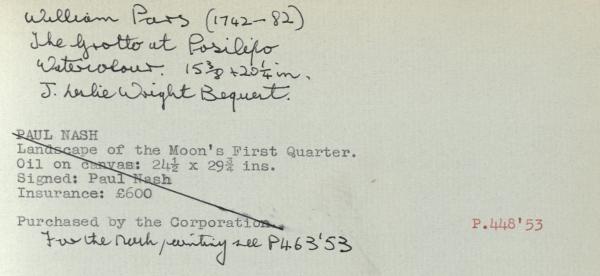 William Pars (1742-82)
The Grotto at Posilipo
Watercolour. 15 3/8 x 20 1/4 in.
J. Leslie Wright Bequest.
PAUL NASH
Landscape of the Moon's First Quarter.
Oil on canvas: 24½ x 29¾ ins.
Signed: Paul Nash
Insurance: £600
Purchased by the Corporation. P.448'53
For the Nash painting see P463'53